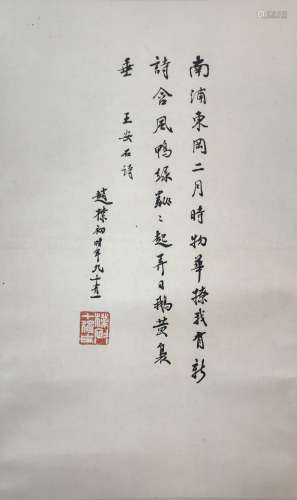 南浦東岡二月時物華撩我有新
詩含風鴨綠粼〻起弄日鵝黃裊
垂
王安石詩
趙樸初時年九十有一